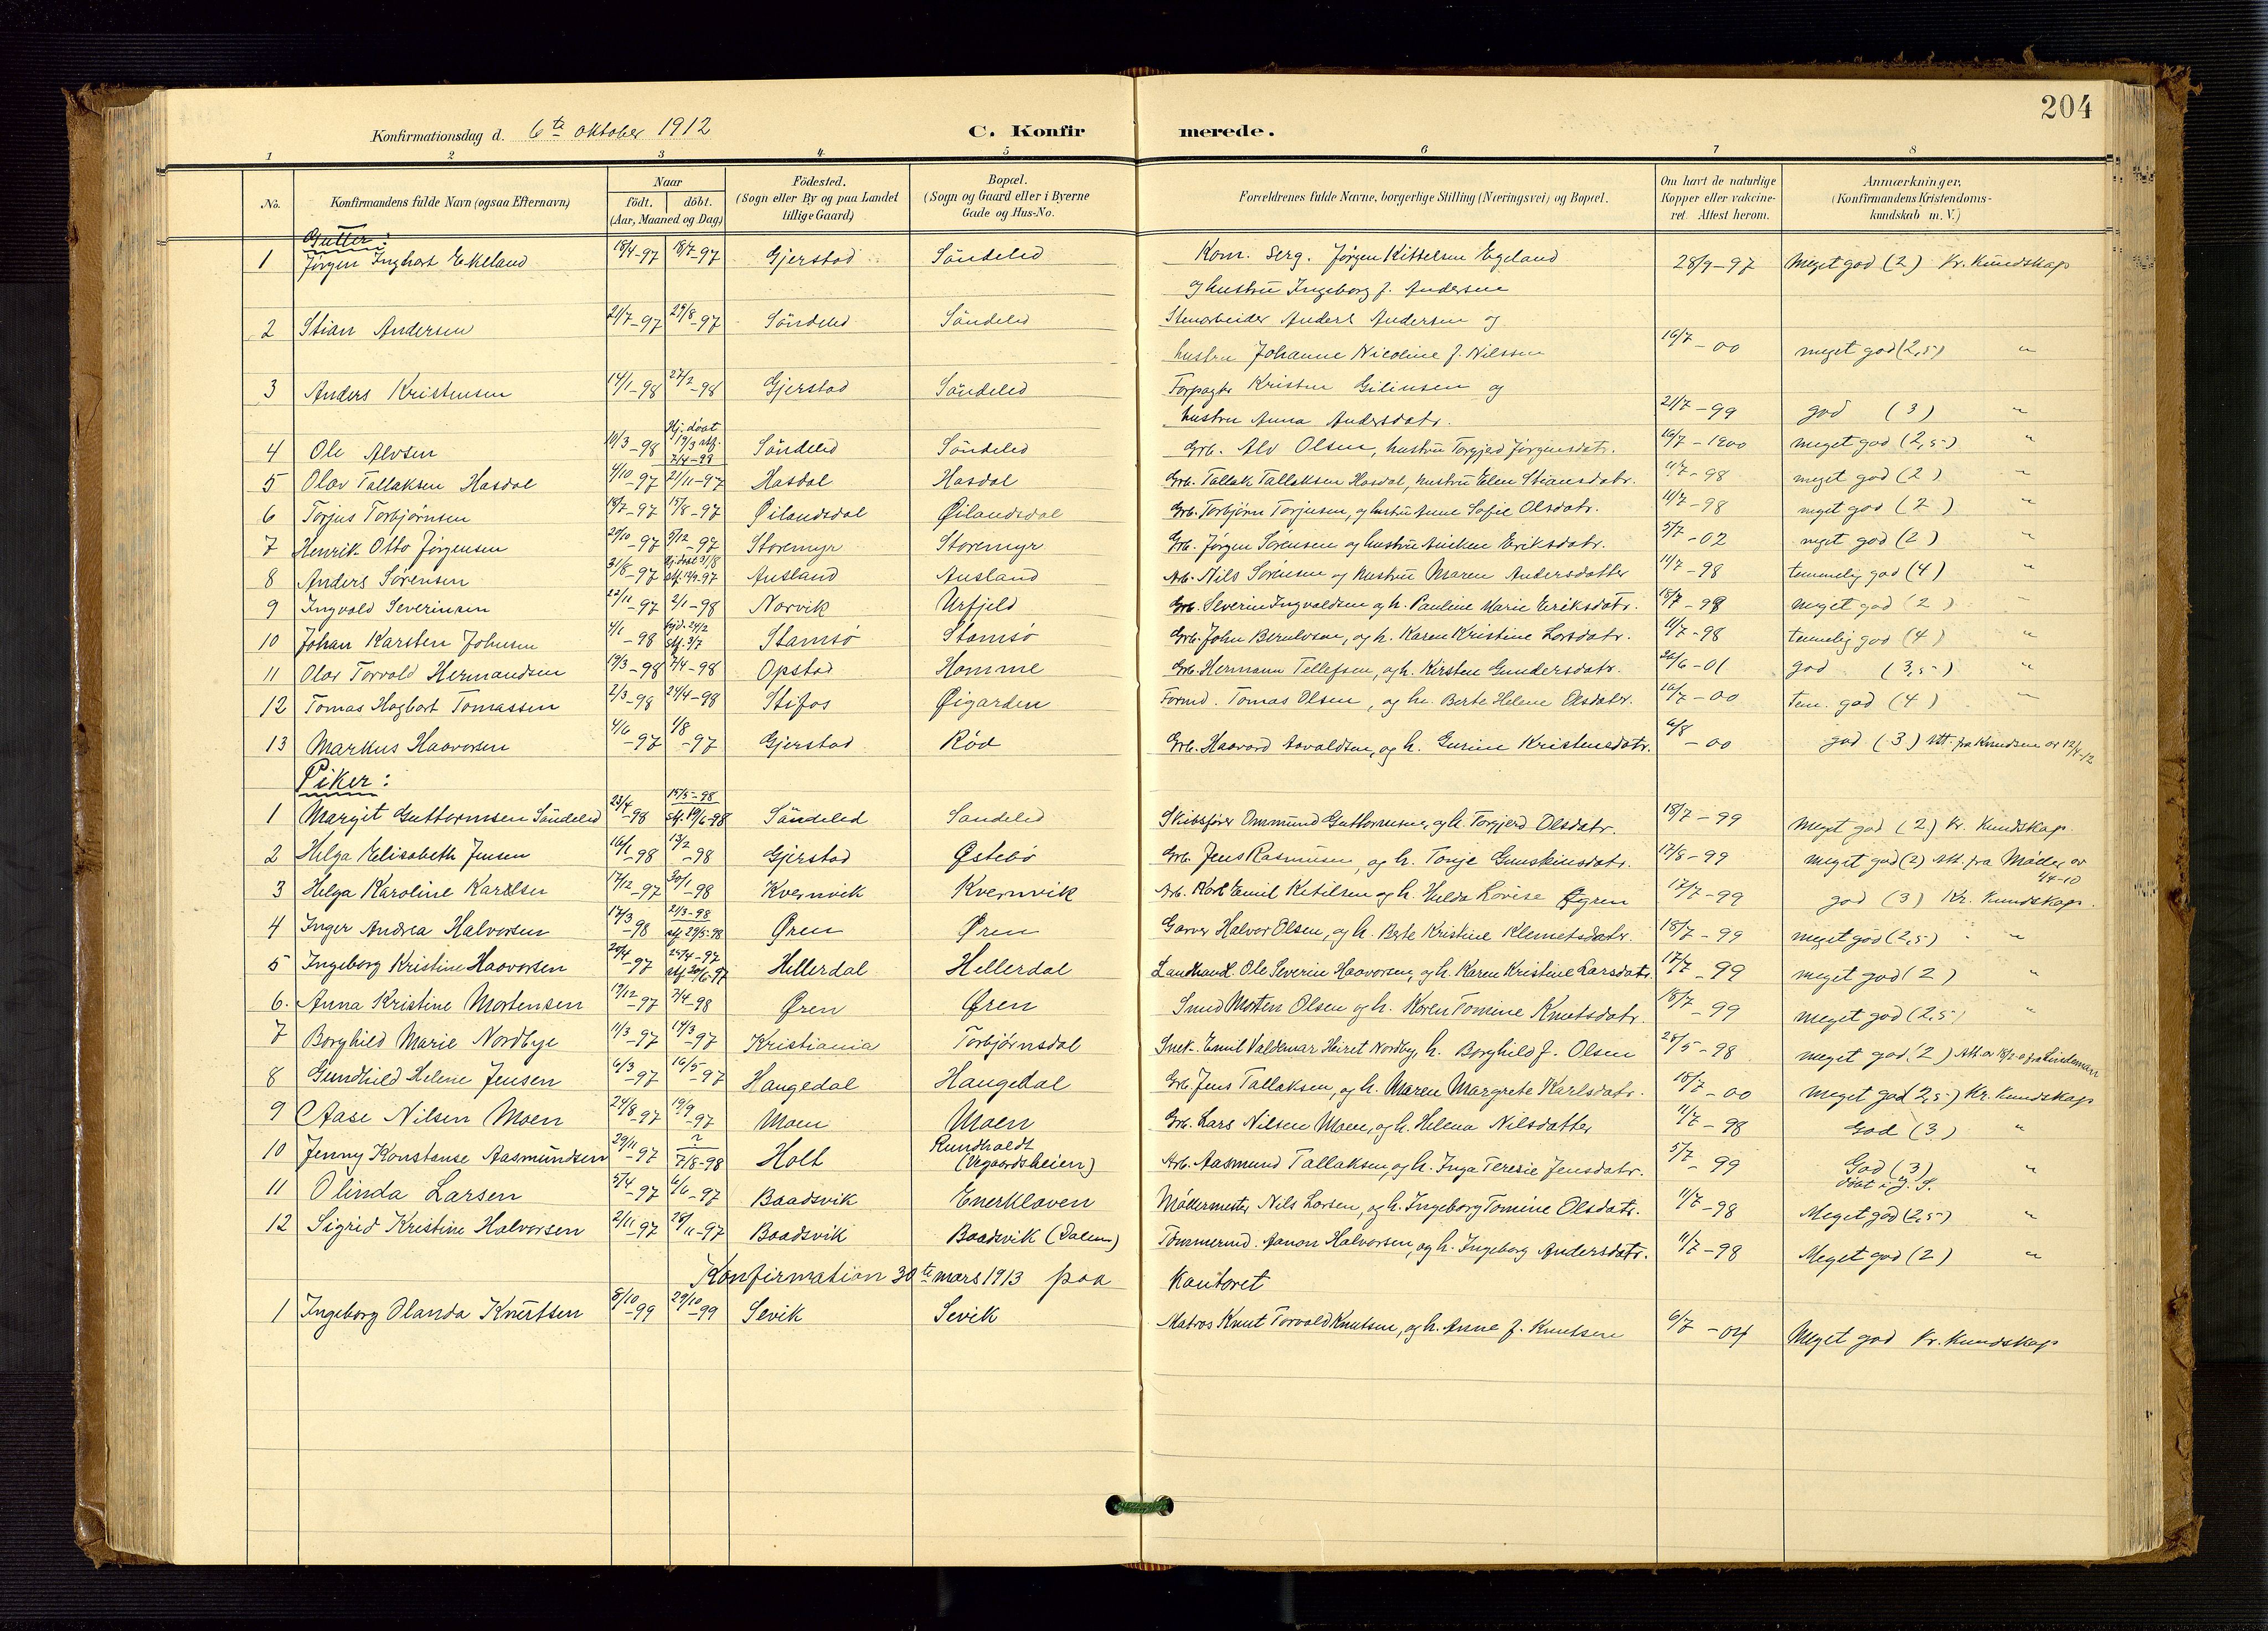 204
Konfirmationsdag d. 6te oktober 1912 C. Konfirmerede.
1 2 3 4 5 6 7 8
No. Konfirmandens fulde Navn (ogsaa Efternavn) Naar födt. döbt. (Aar, Maaned og Dag) Födested. (Sogn eller By og paa Landet tillige Gaard) Bopæl. (Sogn og Gaard eller i Byerne Gade og Hus-No. Forældrenes fulde Navne, borgerlige Stilling (Næringsvei) og Bopæl. Om havt de naturlige Kopper eller vakcineret. Attest herom. Anmærkninger, (Konfirmandens Kristendomskundskab m. V.)
Gutter:
1 Jørgen Inghart Ekeland 18/4-97 18/7-97 Gjerstad Söndeled Kom. Serg. Jørgen Kittelsen Egeland 28/9-97 Meget god (2) Kr. Kundskap
og hustru Ingeborg f. Andersen
2 Stian Andersen 21/7-97 29/8-97 Söndeled Söndeled Stenarbeider Anders Andersen og
hustru Johanne Nicoline f. Nilssen 16/7-00 meget god (2,5) "
3 Anders Kristensen 14/1-98 27/2-98 Gjerstad Söndeled Forpagter Kristen og
hustru Anna Andersdatr. 21/7-99 god (3) "
4 Ole Alvsen 10/3-98 Hj. döpt 19/3 stf. 7/4-98 Söndeled Söndeled Grb. Alv Olsen, hustru Torgjerd Jørgensdatr. 16/7-1900 meget god (2,5) "
5 Olav Tallaksen Hasdal 4/10-97 21/11-97 Hasdal Hasdal Grb. Tallak Tallaksen Hasdal, hustru Elen Stiansdatr. 11/7-98 meget god (2) "
6 Torjus Torbjørnsen 18/7-97 15/8-97 Øilandsdal Øilandsdal Grb. Torbjörn Torjusen, og hustru Anne Sofie Olsdatr. 11/7-98 meget god (2) "
7 Henrik Otto Jörgensen 20/10-97 5/12-97 Storemyr Storemyr Grb. Jørgen Sørensen og hustru Aniken Eriksdatr. 5/7-02 meget god (2) "
8 Anders Sørensen 31/8-97 Hj. döbt 31/8 stf. 12/9-97 Ausland Ausland Arb. Nils Sørensen og hustru Maren Andersdatter 11/7-98 temmelig god (4) "
9 Ingvald Severinsen 22/11-97 2/1-98 Norvik Urfjeld Grb. Severin Ingvaldsen og h. Pauline Marie Eriksdatr. 18/7-98 meget god (2) "
10 Johan Karsten Johnsen 4/1-98 hjd. 24/2 stf. 3/7 Stamsö Stamsö Grb. John Berulvsen, og h. Karen Kristine Larsdatr. 11/7-98 temelig god (4) "
11 Olav Torvald Hermandsen 19/3-98 7/4-98 Opstad Homme Grb. Hermann Tellefsen, og h. Kirsten Gundersdatr. 26/6-01 god (3,5) "
12 Tomas Hagbart Tomassen 2/3-98 24/4-98 Stifos Øigarden Formd. Tomas Olsen, og h. Berte Helene Olsdatr. 16/7-00 tem. god (4) "
13 Markus Haavorsen 4/6-97 1/8-97 Gjerstad Röd Grb. Haavord Aavaldsen, og h. Gurine Kristensdatr. 6/8-00 god (3) Att. fra Knudsen av 12/4-12
Piker:
1 Margit Guttormsen Söndeled 23/4-98 15/5-98 stf. 19/6-98 Söndeled Söndeled Skibsfører Ommund Guttormsen, og h. Torgjerd Olsdatr. 18/7-99 Meget god (2) Kr. Kundskap.
2 Helga Elisabeth Jensen 16/1-98 13/2-98 Gjerstad Østebö Grb. Jens Rasmusen, og h. Tonje Gunskinsdatr. 17/8-99 meget god (2) Att. fra Møller av 1/4-10
3 Helga Karoline Karlsen 17/12-97 30/1-98 Kvernvik Kvernvik Arb. Karl Emil Ketilsen og h. Hulda Lovise Øgren 17/7-99 god (3) Kr. Kundskap.
4 Inger Andrea Halvorsen 17/3-98 21/3-98 stf. 29/5-98 Øren Øren Garver Halvor Olsen, og h. Berte Kristine Klemetsdatr. 18/7-99 meget god (2,5) "
5 Ingeborg Kristine Haavorsen 20/4-97 25/4-97 stf. 20/6-97 Hellerdal Hellerdal Landhandl. Ole Severin Haavorsen, og h. Karen Kristine Larsdatr. 17/7-99 meget god (2) "
6. Anna Kristine Mortensen 19/12-97 7/4-98 Øren Øren Smed Morten Olsen og h. Karen Tomine Knutsdatr. 18/7-99 meget god (2,5) "
7 Borghild Marie Nordbye 11/3-97 14/3-97 Kristiania Torbjörnsdal Snek. Emil Valdemar Nordby, h. Borghild f. Olsen 28/5-98 meget god (2) Att. av fra Lindeman
8 Gundhild Helene Jensen 6/3-97 16/5-97 Haugedal Haugedal Grb. Jens Tallaksen, og h. Maren Margrete Karlsdatr. 18/7-00 Meget god 2,5) Kr. Kundskap
9 Aase Nilsen Moen 24/8-97 19/9-97 Moen Moen Grb. Lars Nilsen Moen, og h. Helena Nilsdatter 11/7-98 God (3) "
10 Jenny Konstanse Aasmundsen 29/11-97 ? 7/8-98 Holt Rundholdt (Vegaardsheien) Arb. Aasmund Tallaksen, og h. Inga Teresie Jensdatr. 5/7-99 God (3) "
döbt i J. S.
11 Olinda Larsen 5/4-97 6/6-97 Baadsvik Enerklaven Möllermester Nils Larsen, og h. Ingeborg Tomine Olsdatr. 11/7-98 Meget god (2,5) "
12 Sigrid Kristine Halvorsen 2/11-97 28/11-97 Baadsvik Baadsvik (Dalen) Tömmermd. Aanon Halvorsen, og h. Ingeborg Andersdatr. 11/7-98 Meget god (2) "
Konfirmation 30te mars 1913 paa Kontoret
1 Ingeborg Olanda Knutsen 8/10-99 29/10-99 Sevik Sevik Matros Knut Torvald Knutsen, og h. Anne f. Knutsen 6/7-04 Meget god Kr. Kundskap